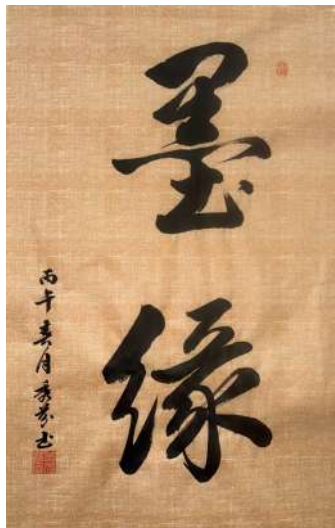 墨缘
丙午春月秀芬书